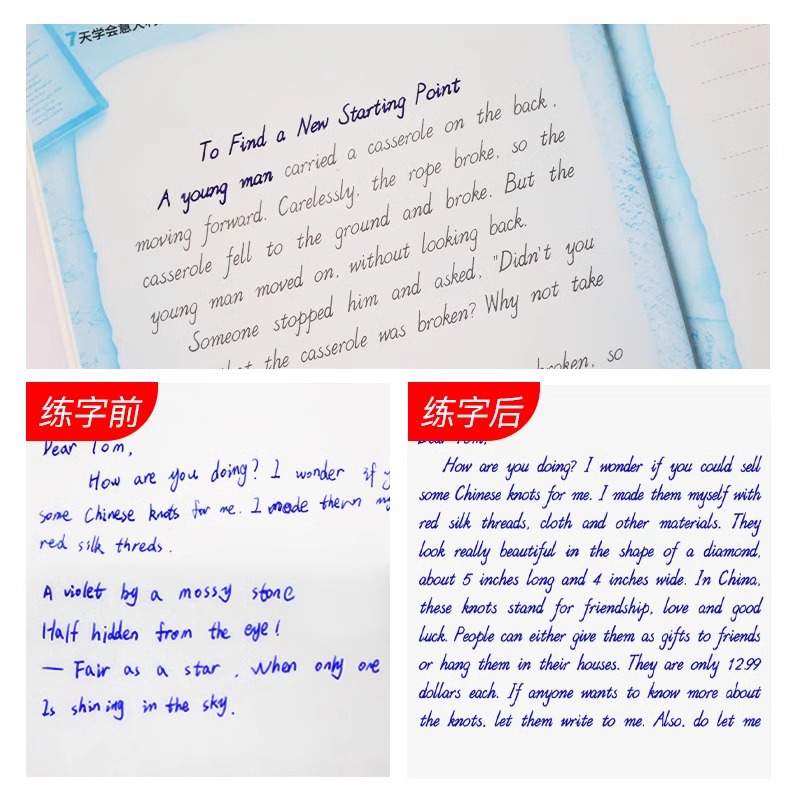 7天学会意大利
To Find a New Starting Point
A young man carried a casserole on the back,
moving forward. Carelessly, the rope broke, so the
casserole fell to the ground and broke. But the
young man moved on, without looking back.
Someone stopped him and asked, "Didn't you
the casserole was broken? Why not take
broken, so
练字前
Dear Tom,
How are you doing? I wonder if y
some Chinese knots for me. I made them my
red silk threds.
A violet by a mossy stone
Half hidden from the eye!
— Fair as a star, when only one
Is shining in the sky.
练字后
Dear Tom,
How are you doing? I wonder if you could sell
some Chinese knots for me. I made them myself with
red silk threads, cloth and other materials. They
look really beautiful in the shape of a diamond,
about 5 inches long and 4 inches wide. In China,
these knots stand for friendship, love and good
luck. People can either give them as gifts to friends
or hang them in their houses. They are only 12.99
dollars each. If anyone wants to know more about
the knots, let them write to me. Also, do let me